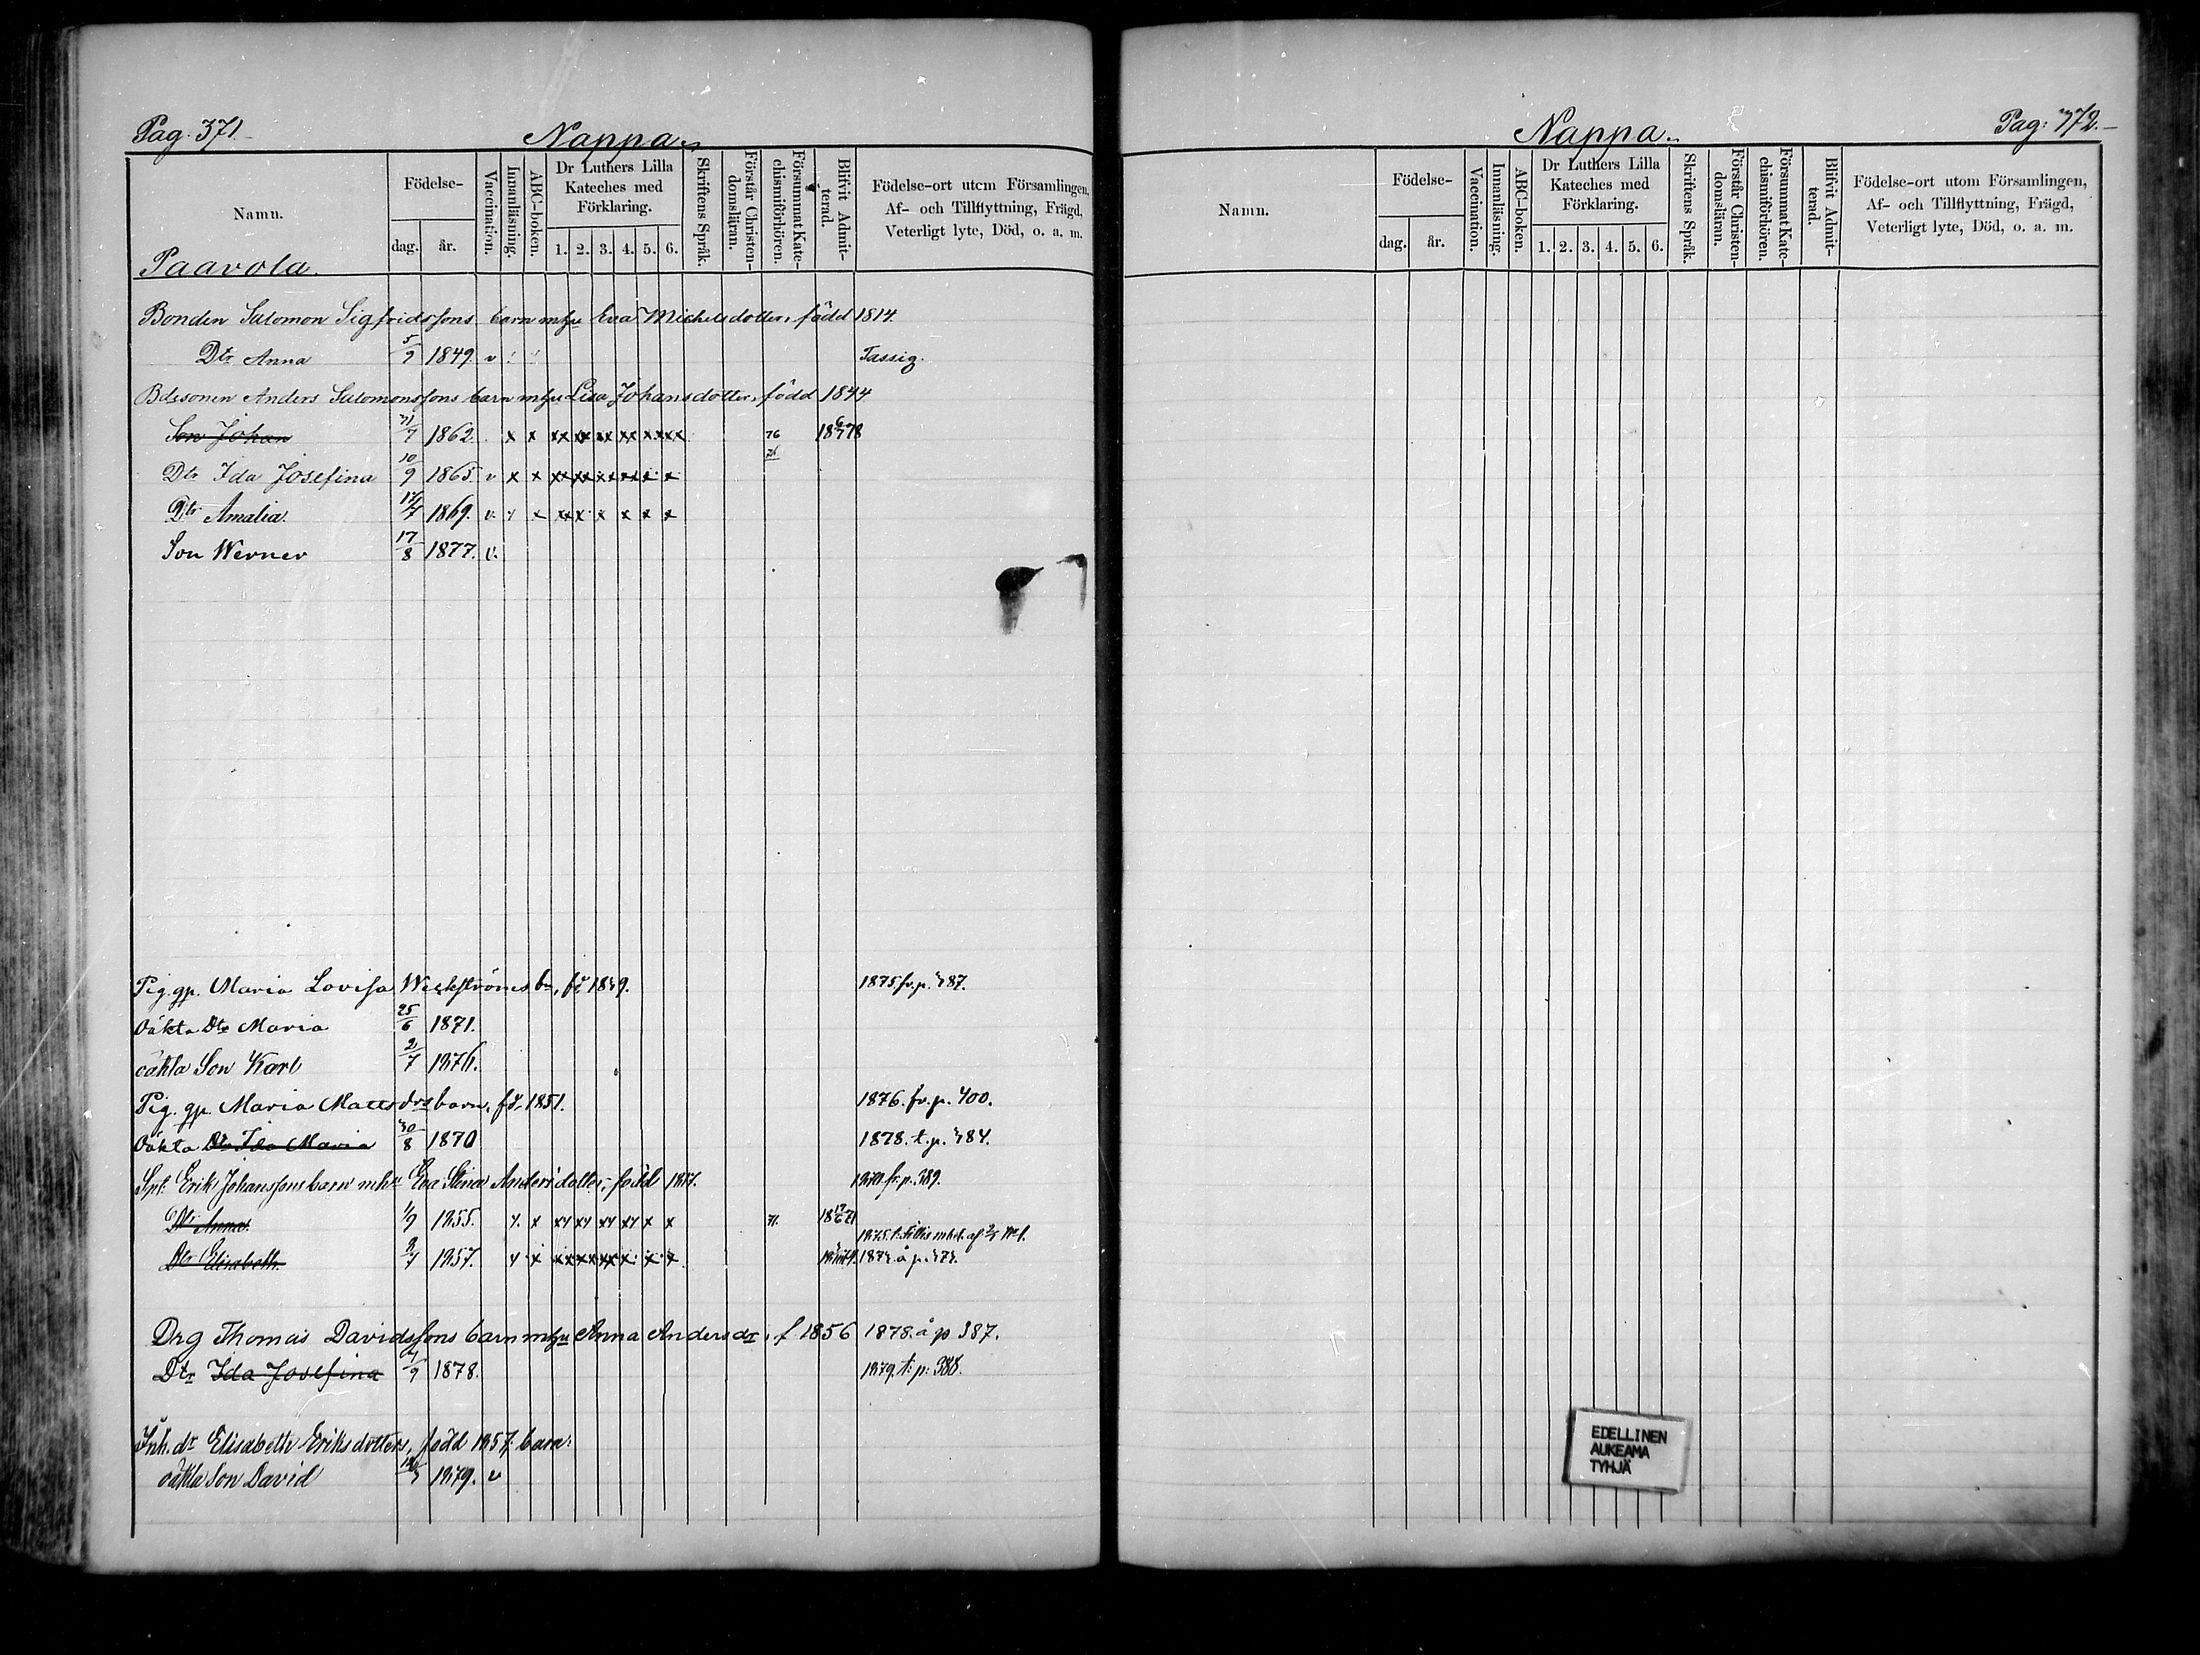 Pag. 371.
Nappa.
Namn.
Födelse-
dag.
år.
Vaccination.
Innanläsning.
ABC-boken.
Dr Luthers Lilla
Kateches med
Förklaring.
1. 2. 3. 4. 5. 6.
Skriftens Språk.
Förstår Christen-
domsläran.
Försummat Kate-
chismiförhören.
Blifvit Admit-
terad.
Födelse-ort utom Församlingen,
Af- och Tillflyttning, Frägd,
Veterligt lyte, Död, o. a. m.
Paavola.
Bonden Salomon Sigfridssons barn mhu Eva Michelsdotter, född 1814.
Dtr Anna 5/9 1849. v Fassig.
Bdesonen Anders Salomonssons barn mhu Lisa Johansdotter, född 1844
Son Johan 1862. x x xx xx xx xx xx xx 76 18 78
Dtr Ida Josefina 10/9 1865. v x x xx xx xx xx x x 76
Dtr Amalia. 1869. v. x x xx x x x x x
Son Werner 17/8 1877. v.
Pig. gp. Maria Lovisa Weckströms bn, fd 1849. 1875 fr. p. 387.
Oäkta Dtr Maria 25/6 1871.
oäkta Son Karl 2/7 1876.
Pig. gp. Maria Matts drs barn, fd. 1851. 1876. fr. p. 400.
Oäkta Dtr Ida Maria 30/8 1870 1878. t. p. 384.
Erik Johanssons barn mhu Eva Stina Andersdotter, född 1817. 1870 fr. p. 389.
Dtr Anna. 1/9 1855. x. x xx xx xx xx x x 71.
Dtr Elisabeth. 1857. x x xx xx xx xx x x
Drg Thomas Davidssons barn mhu Anna Anders dr, f 1856 1878. å p 387.
Dtr Ida Josefina 1878. 1879. t: p: 388.
Inh. dr Elisabeth Eriksdotters, född 1857. barn:
oäkta Son David 1879. v
Nappa.
Pag: 372.
Namn.
Födelse-
dag.
år.
Vaccination.
Innanläsning.
ABC-boken.
Dr Luthers Lilla
Kateches med
Förklaring.
1. 2. 3. 4. 5. 6.
Skriftens Språk.
Förstår Christen-
domsläran.
Försummat Kate-
chismiförhören.
Blifvit Admit-
terad.
Födelse-ort utom Församlingen,
Af- och Tillflyttning, Frägd,
Veterligt lyte, Död, o. a. m.
EDELLINEN
AUKEAMA
TYHJÄ